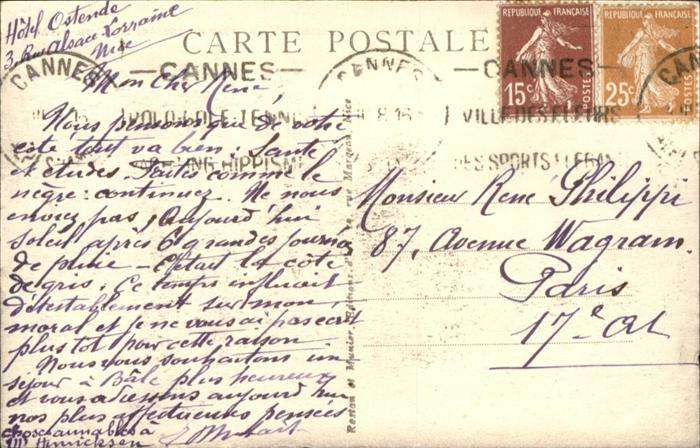 Hôtel Ostende
3, Rue Alsace Lorraine
Nice
CARTE POSTALE
REPUBLIQUE FRANÇAISE
15c
REPUBLIQUE FRANÇAISE
25c
CANNES
CANNES
CANNES
CANNES
VILLE DES FLEURS
DES SPORTS ELEGANTS
POLO GOLF TENNIS
YACHTING HIPPISME
Mon Cher René,
Nous pensons que de votre
côté tout va bien. Santé
et études. Faites comme le
nègre: continuez. Ne nous
enviez pas, Aujourd'hui
soleil après 6 grandes journées
de pluie - C'était la côte
de gris. Ce temps influait
détestablement sur mon
moral et je ne vous ai pas écrit
plus tôt pour cette raison
Nous vous souhaitons un
séjour à Bâle plus heureux
et vous adressons aujourd'hui
nos plus affectueuses pensées
choses aimables à
Monsieur René Philippi
87, Avenue Wagram.
Paris
17e Ar